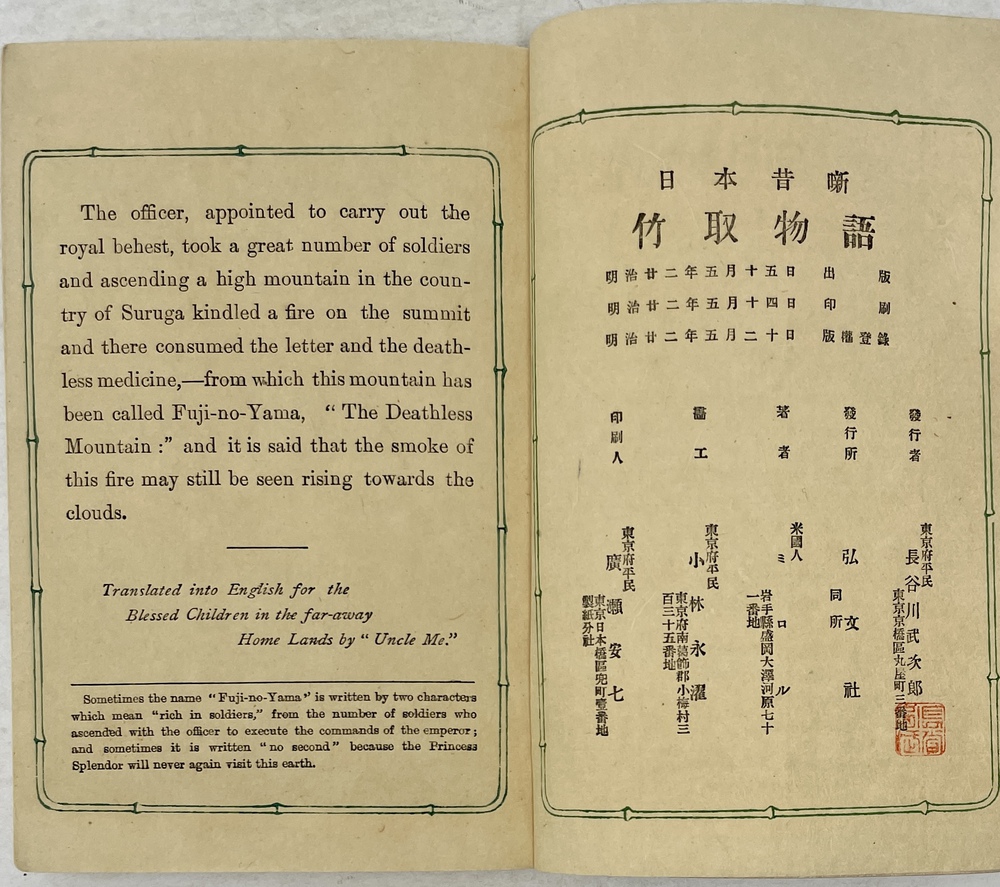 The officer, appointed to carry out the
royal behest, took a great number of soldiers
and ascending a high mountain in the coun-
try of Suruga kindled a fire on the summit
and there consumed the letter and the death-
less medicine,—from which this mountain has
been called Fuji-no-Yama, “ The Deathless
Mountain :” and it is said that the smoke of
this fire may still be seen rising towards the
clouds.
Translated into English for the
Blessed Children in the far-away
Home Lands by “ Uncle Me.”
Sometimes the name “Fuji-no-Yama” is written by two characters
which mean “rich in soldiers,” from the number of soldiers who
ascended with the officer to execute the commands of the emperor;
and sometimes it is written “no second” because the Princess
Splendor will never again visit this earth.
日本昔噺
竹取物語
明治廿二年五月十五日 出版
明治廿二年五月十四日 印刷
明治廿二年五月二十日 版權登錄
發行者
東京府平民
長谷川武次郎
東京京橋區丸屋町三番地
發行所
弘文社
同所
著者
米國人
ミロル
岩手縣盛岡大澤河原七十
一番地
畵工
東京府平民
小林永濯
東京府南葛飾郡小梅村三
百三十五番地
印刷人
東京府平民
廣瀬安七
東京日本橋區兜町壹番地
製紙分社